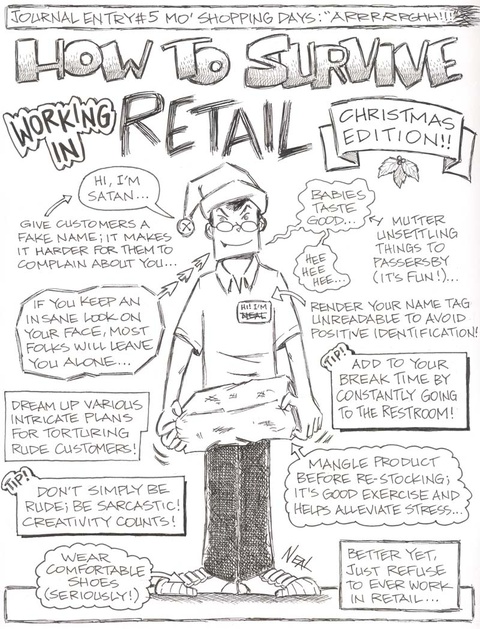 JOURNAL ENTRY#5 MO' SHOPPING DAYS: "ARRRRRGHH!!!"
HOW TO SURVIVE
WORKING
IN
RETAIL
CHRISTMAS
EDITION!!
HI, I'M
SATAN...
GIVE CUSTOMERS A
FAKE NAME; IT MAKES
IT HARDER FOR THEM TO
COMPLAIN ABOUT YOU...
BABIES
TASTE
GOOD...
HEE
HEE
HEE...
MUTTER
UNSETTLING
THINGS TO
PASSERSBY
(IT'S FUN!)...
IF YOU KEEP AN
INSANE LOOK ON
YOUR FACE, MOST
FOLKS WILL LEAVE
YOU ALONE...
HI! I'M
NEAL
RENDER YOUR NAME TAG
UNREADABLE TO AVOID
POSITIVE IDENTIFICATION!
TIP!
ADD TO YOUR
BREAK TIME BY
CONSTANTLY GOING
TO THE RESTROOM!
DREAM UP VARIOUS
INTRICATE PLANS
FOR TORTURING
RUDE CUSTOMERS!
MANGLE PRODUCT
BEFORE RE-STOCKING;
IT'S GOOD EXERCISE AND
HELPS ALLEVIATE STRESS...
TIP!
DON'T SIMPLY BE
RUDE; BE SARCASTIC!
CREATIVITY COUNTS!
WEAR
COMFORTABLE
SHOES
(SERIOUSLY!)
NEAL
BETTER YET,
JUST REFUSE
TO EVER WORK
IN RETAIL...